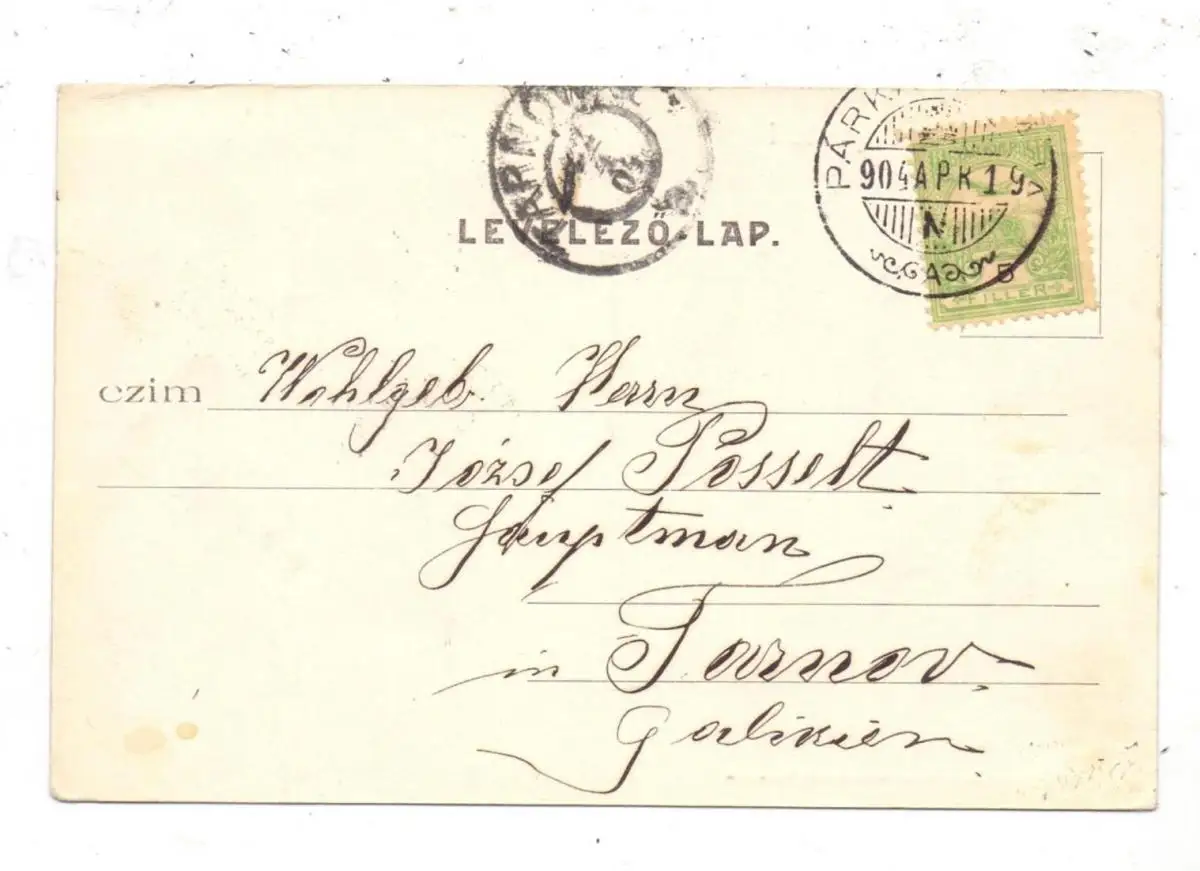 TARNOW
PÁRK
904 APR 19
N
A
5
FILLER
LEVELEZŐ-LAP.
czim Wohlgeb. Herrn
József Posselt
Hauptman
in Tarnov.
Galizien